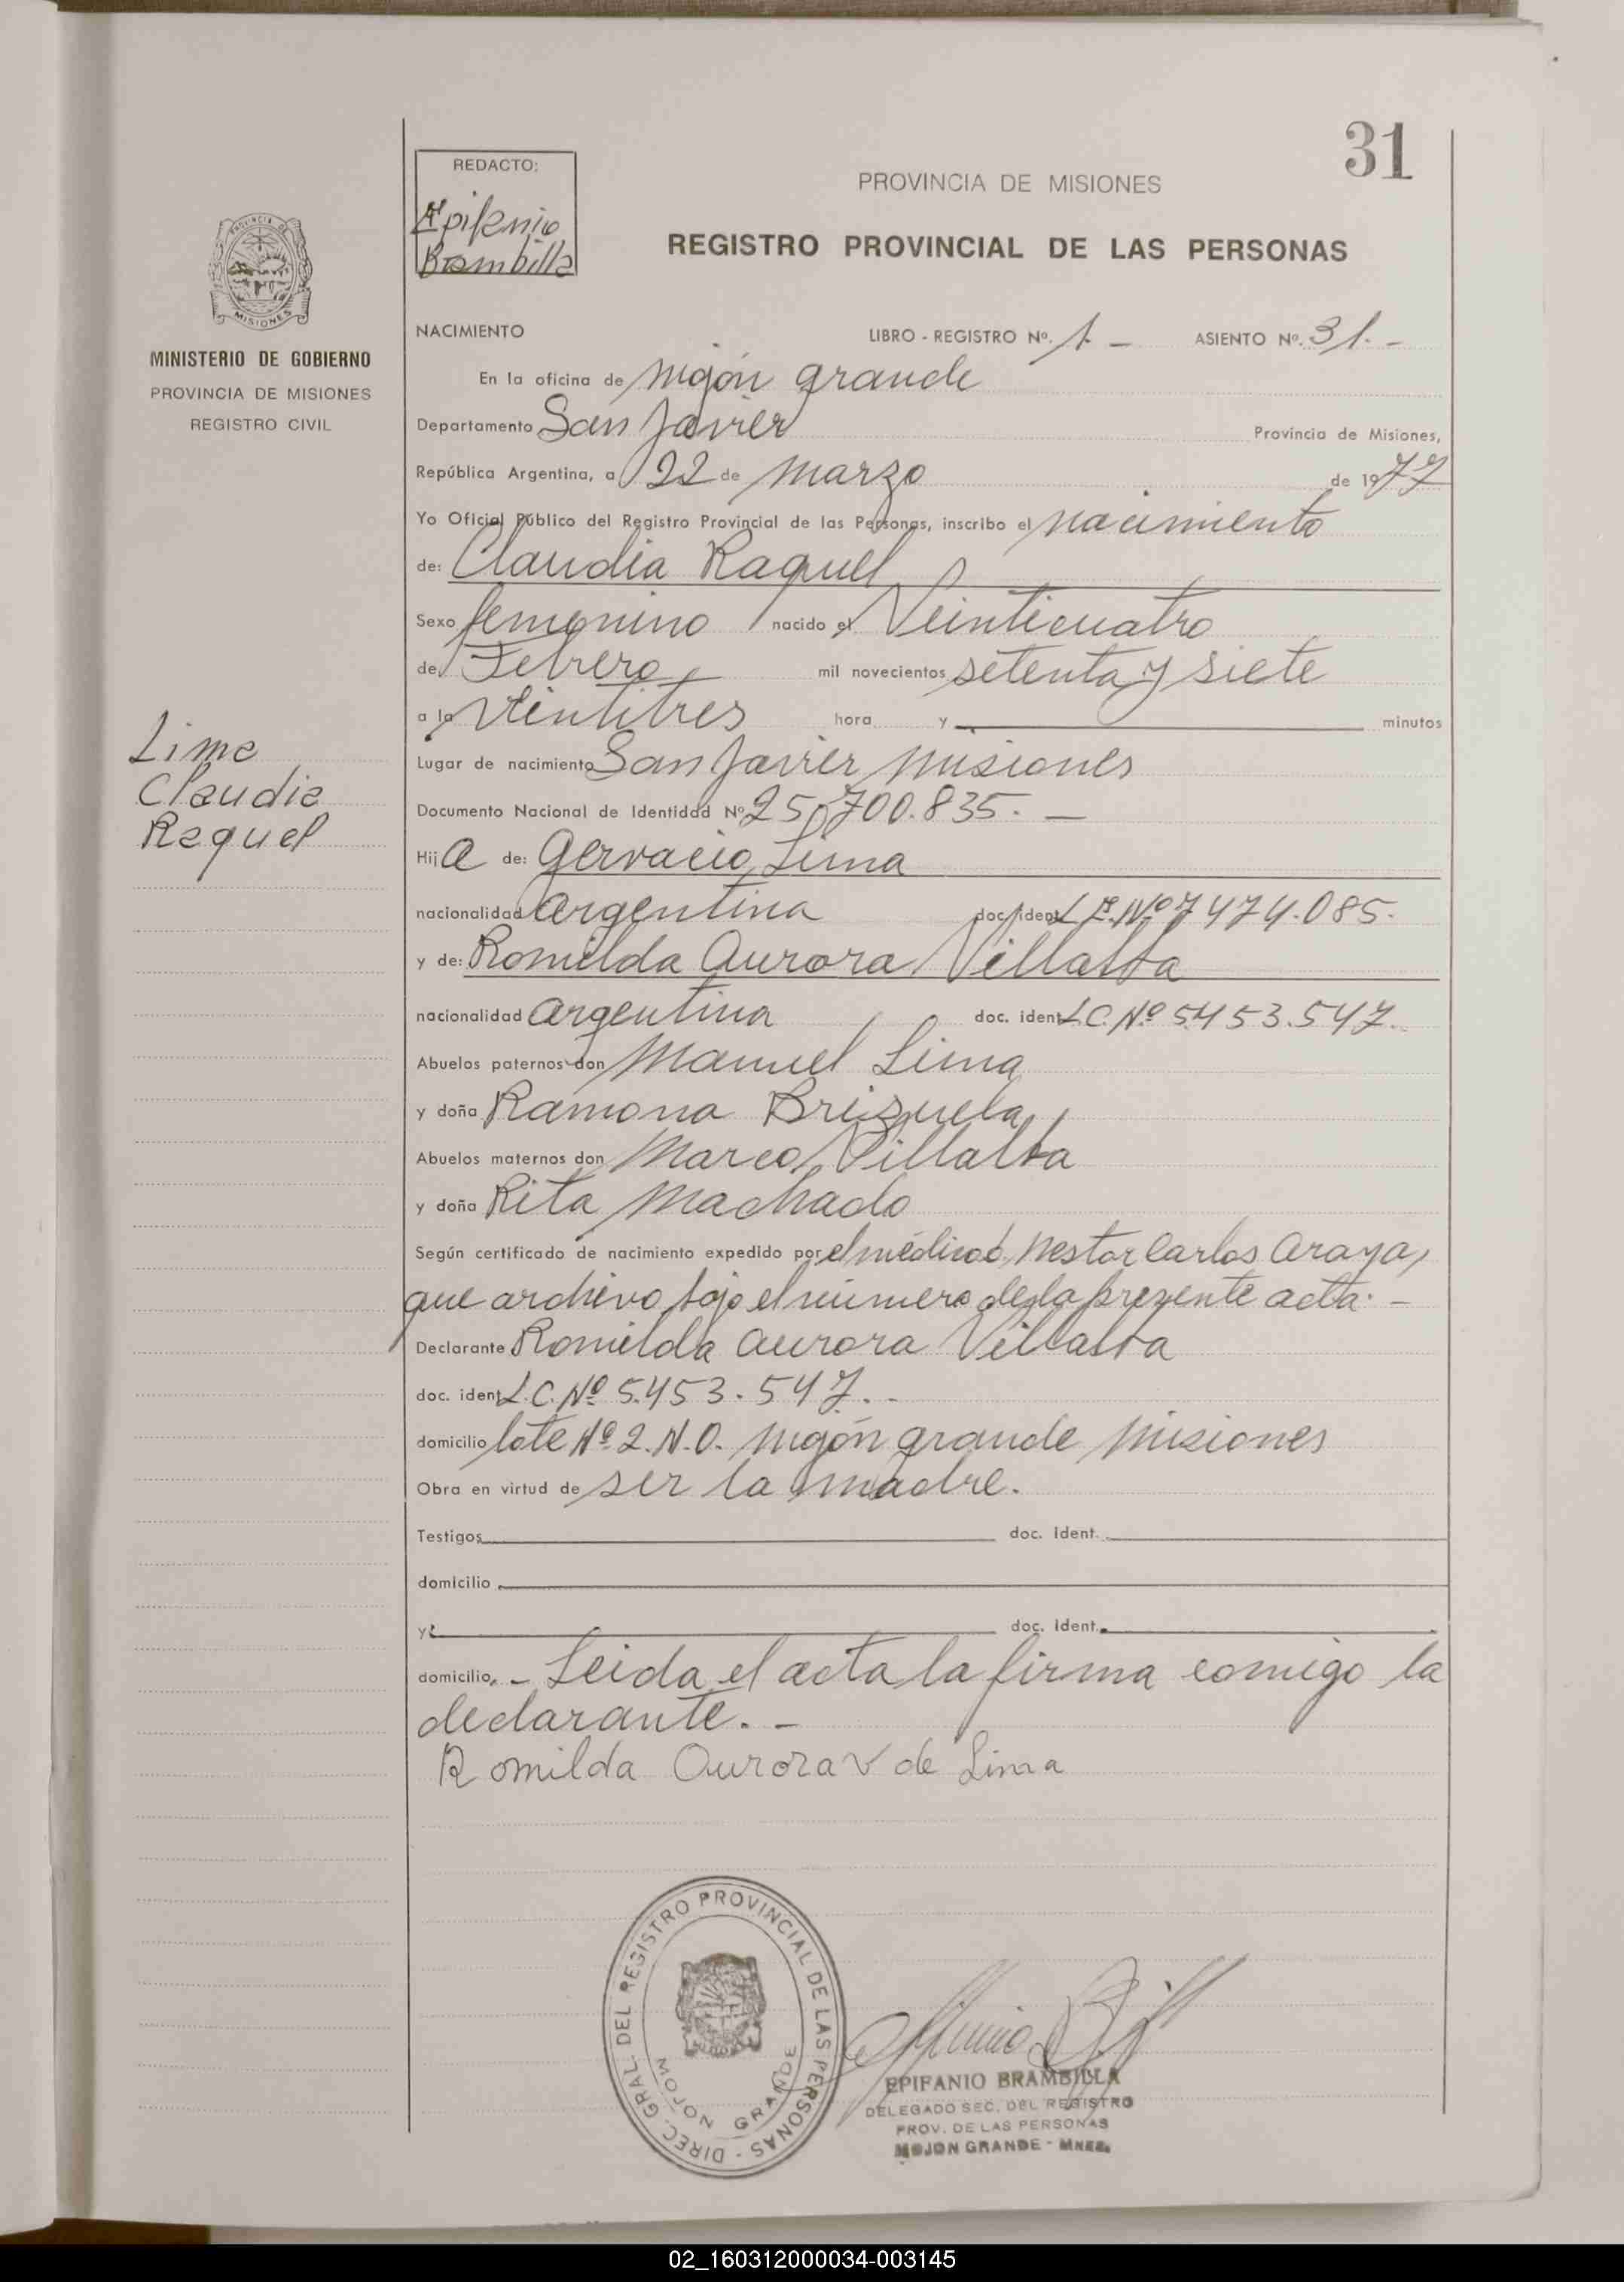 31
REDACTO:
Epifanio
Brambilla
PROVINCIA DE MISIONES
REGISTRO PROVINCIAL DE LAS PERSONAS
PROVINCIA DE
MISIONES
MINISTERIO DE GOBIERNO
PROVINCIA DE MISIONES
REGISTRO CIVIL
NACIMIENTO LIBRO - REGISTRO Nº. 1. - ASIENTO Nº. 31. -
En la oficina de Mojón grande
Departamento San Javier Provincia de Misiones,
República Argentina, a 22 de Marzo de 1977
Yo Oficial Público del Registro Provincial de las Personas, inscribo el nacimiento
de: Claudia Raquel
Sexo femenino nacido el Veinticuatro
de Febrero mil novecientos setenta y siete
a la Veintitres hora y minutos
Lima
Claudia
Raquel
Lugar de nacimiento San Javier Misiones
Documento Nacional de Identidad Nº 25.700.835. -
Hija de: Gervacio Lima
nacionalidad Argentina doc. ident. L.E. Nº 7474.085.
y de: Romilda Aurora Villalba
nacionalidad Argentina doc. ident. L.C. Nº 5.453.547.
Abuelos paternos don Manuel Lima
y doña Ramona Brizuela
Abuelos maternos don Marco Villalba
y doña Rita Machado
Según certificado de nacimiento expedido por el médico d. Nestor Carlos Araya,
que archivo bajo el número de la prezente acta. -
Declarante Romilda Aurora Villalba
doc. ident. L.C. Nº 5.453.547. -
domicilio lote Nº 2. N.O. Mojón grande Misiones
Obra en virtud de ser la madre.
Testigos doc. ident.
domicilio
y doc. ident.
domicilio. - Leida el acta la firma comigo la
declarante. -
Romilda Aurora V de Lima
DIREC. GRAL. DEL REGISTRO PROVINCIAL DE LAS PERSONAS -
MOJON GRANDE
EPIFANIO BRAMBILLA
DELEGADO SEC. DEL REGISTRO
PROV. DE LAS PERSONAS
MOJON GRANDE - MNES.
02_160312000034-003145